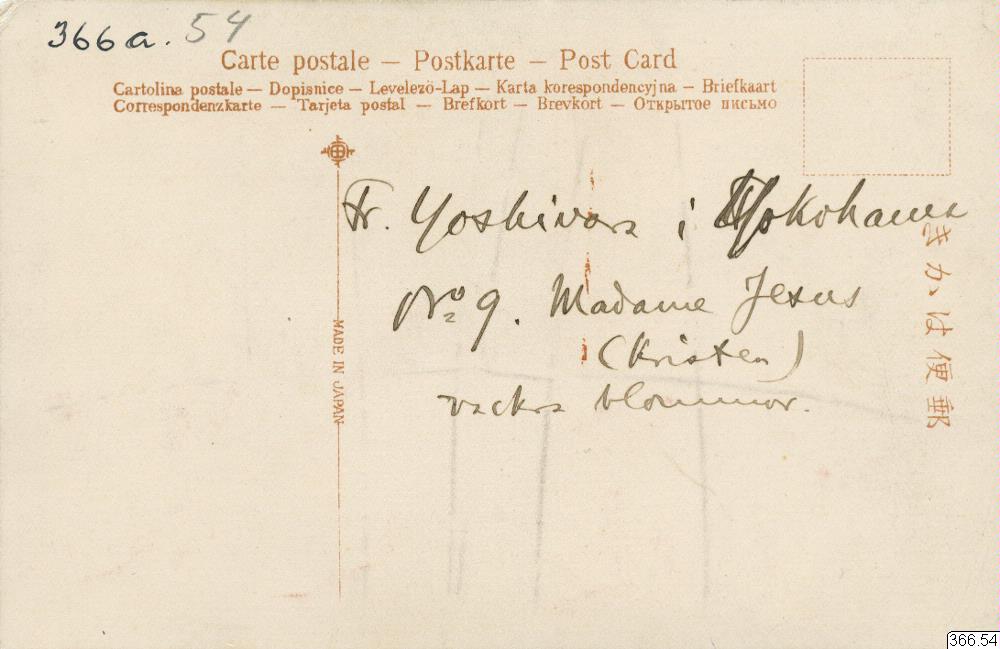 366a. 54
Carte postale – Postkarte – Post Card
Cartolina postale – Dopisnice – Levelező-Lap – Karta korespondencyjna – Briefkaart
Correspondenzkarte – Tarjeta postal – Brefkort – Brevkort – Открытое письмо
Fr. Yoshivara i Yokohama
No 9. Madame Jesus
(Kristen)
vackra blommor.
MADE IN JAPAN
郵便はかき
366.54